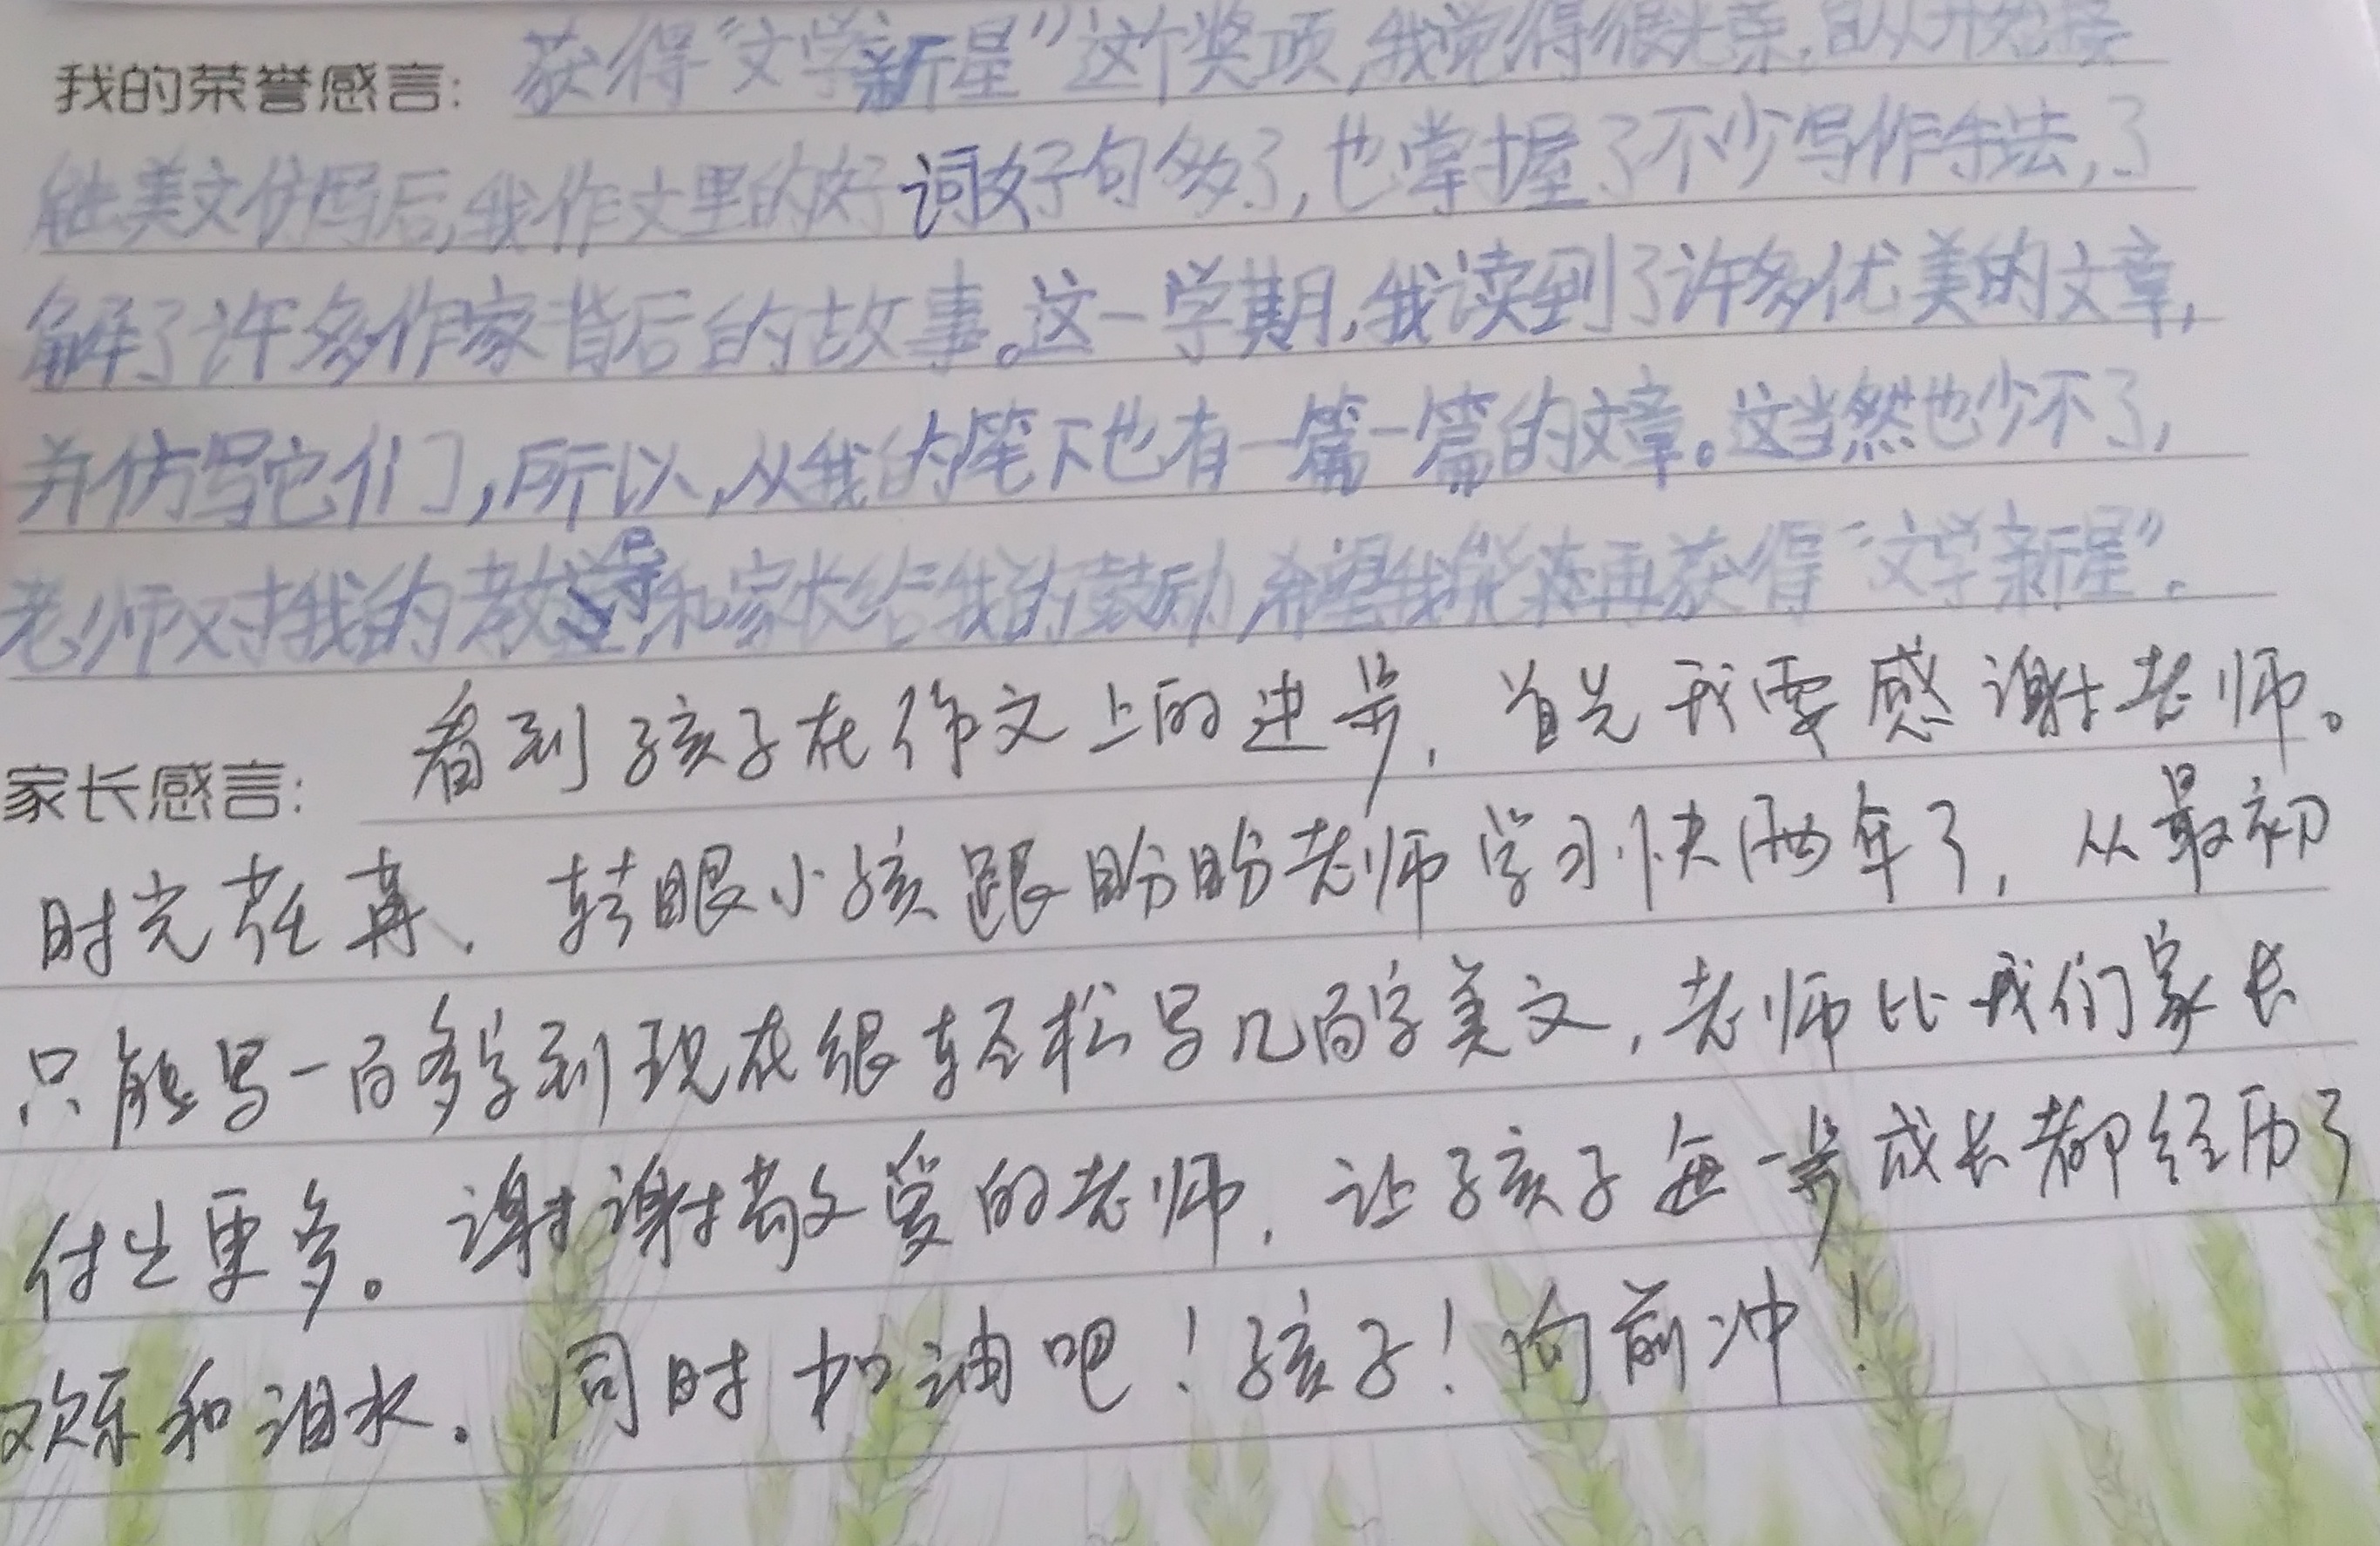 我的荣誉感言: 获得“文学新星”这个奖项,我觉得很光荣,自从开始接
触美文仿写后,我作文里的好词好句多了,也掌握了不少写作手法,了
解了许多作家背后的故事。这一学期,我读到了许多优美的文章,
并仿写它们,所以,从我的笔下也有一篇一篇的文章。这当然也少不了,
老师对我的教导和家长给我的鼓励,希望我能再获得“文学新星”。
家长感言: 看到孩子在作文上的进步,首先我要感谢老师。
时光荏苒,转眼小孩跟盼盼老师学习快两年了,从最初
只能写一百多字到现在很轻松写几百字美文,老师比我们家长
付出更多。谢谢敬爱的老师,让孩子每一步成长都经历了
欢乐和泪水.同时加油吧!孩子!向前冲!